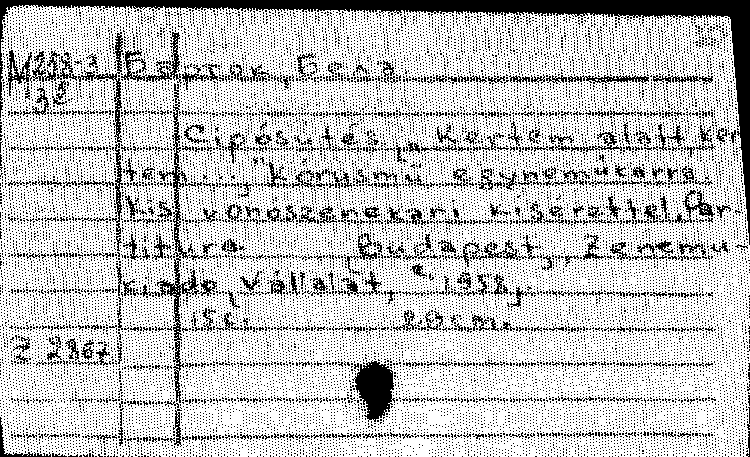 М293-3 Барток, Бела
32
Cipósütés „Kertem alatt ker-
tem...” Kórusmű egyneműkarra.
Kis vonószenekari kisérettel. Par-
titura. Budapest, Zenemű-
kiadó Vállalat, c. 1952.
15 с. 20 cm.